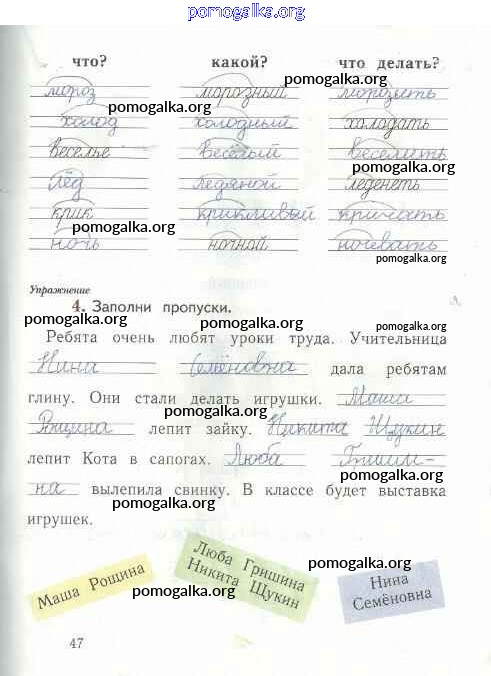 pomogalka.org
что? какой? что делать?
pomogalka.org
мороз морозный морозить
pomogalka.org
холод холодный холодать
pomogalka.org
веселье весёлый веселить
pomogalka.org
лёд ледяной леденеть
pomogalka.org
крик крикливый кричать
pomogalka.org
ночь ночной ночевать
pomogalka.org
Упражнение
4. Заполни пропуски.
pomogalka.org pomogalka.org pomogalka.org
Ребята очень любят уроки труда. Учительница
Нина Семёновна дала ребятам
pomogalka.org
глину. Они стали делать игрушки. Маша
pomogalka.org
Рощина лепит зайку. Никита Щукин
pomogalka.org
лепит Кота в сапогах. Люба Гриши-
на вылепила свинку. В классе будет выставка
pomogalka.org
игрушек.
Маша Рощина
Люба Гришина
Никита Щукин
Нина
Семёновна
pomogalka.org
pomogalka.org
pomogalka.org
47
pomogalka.org